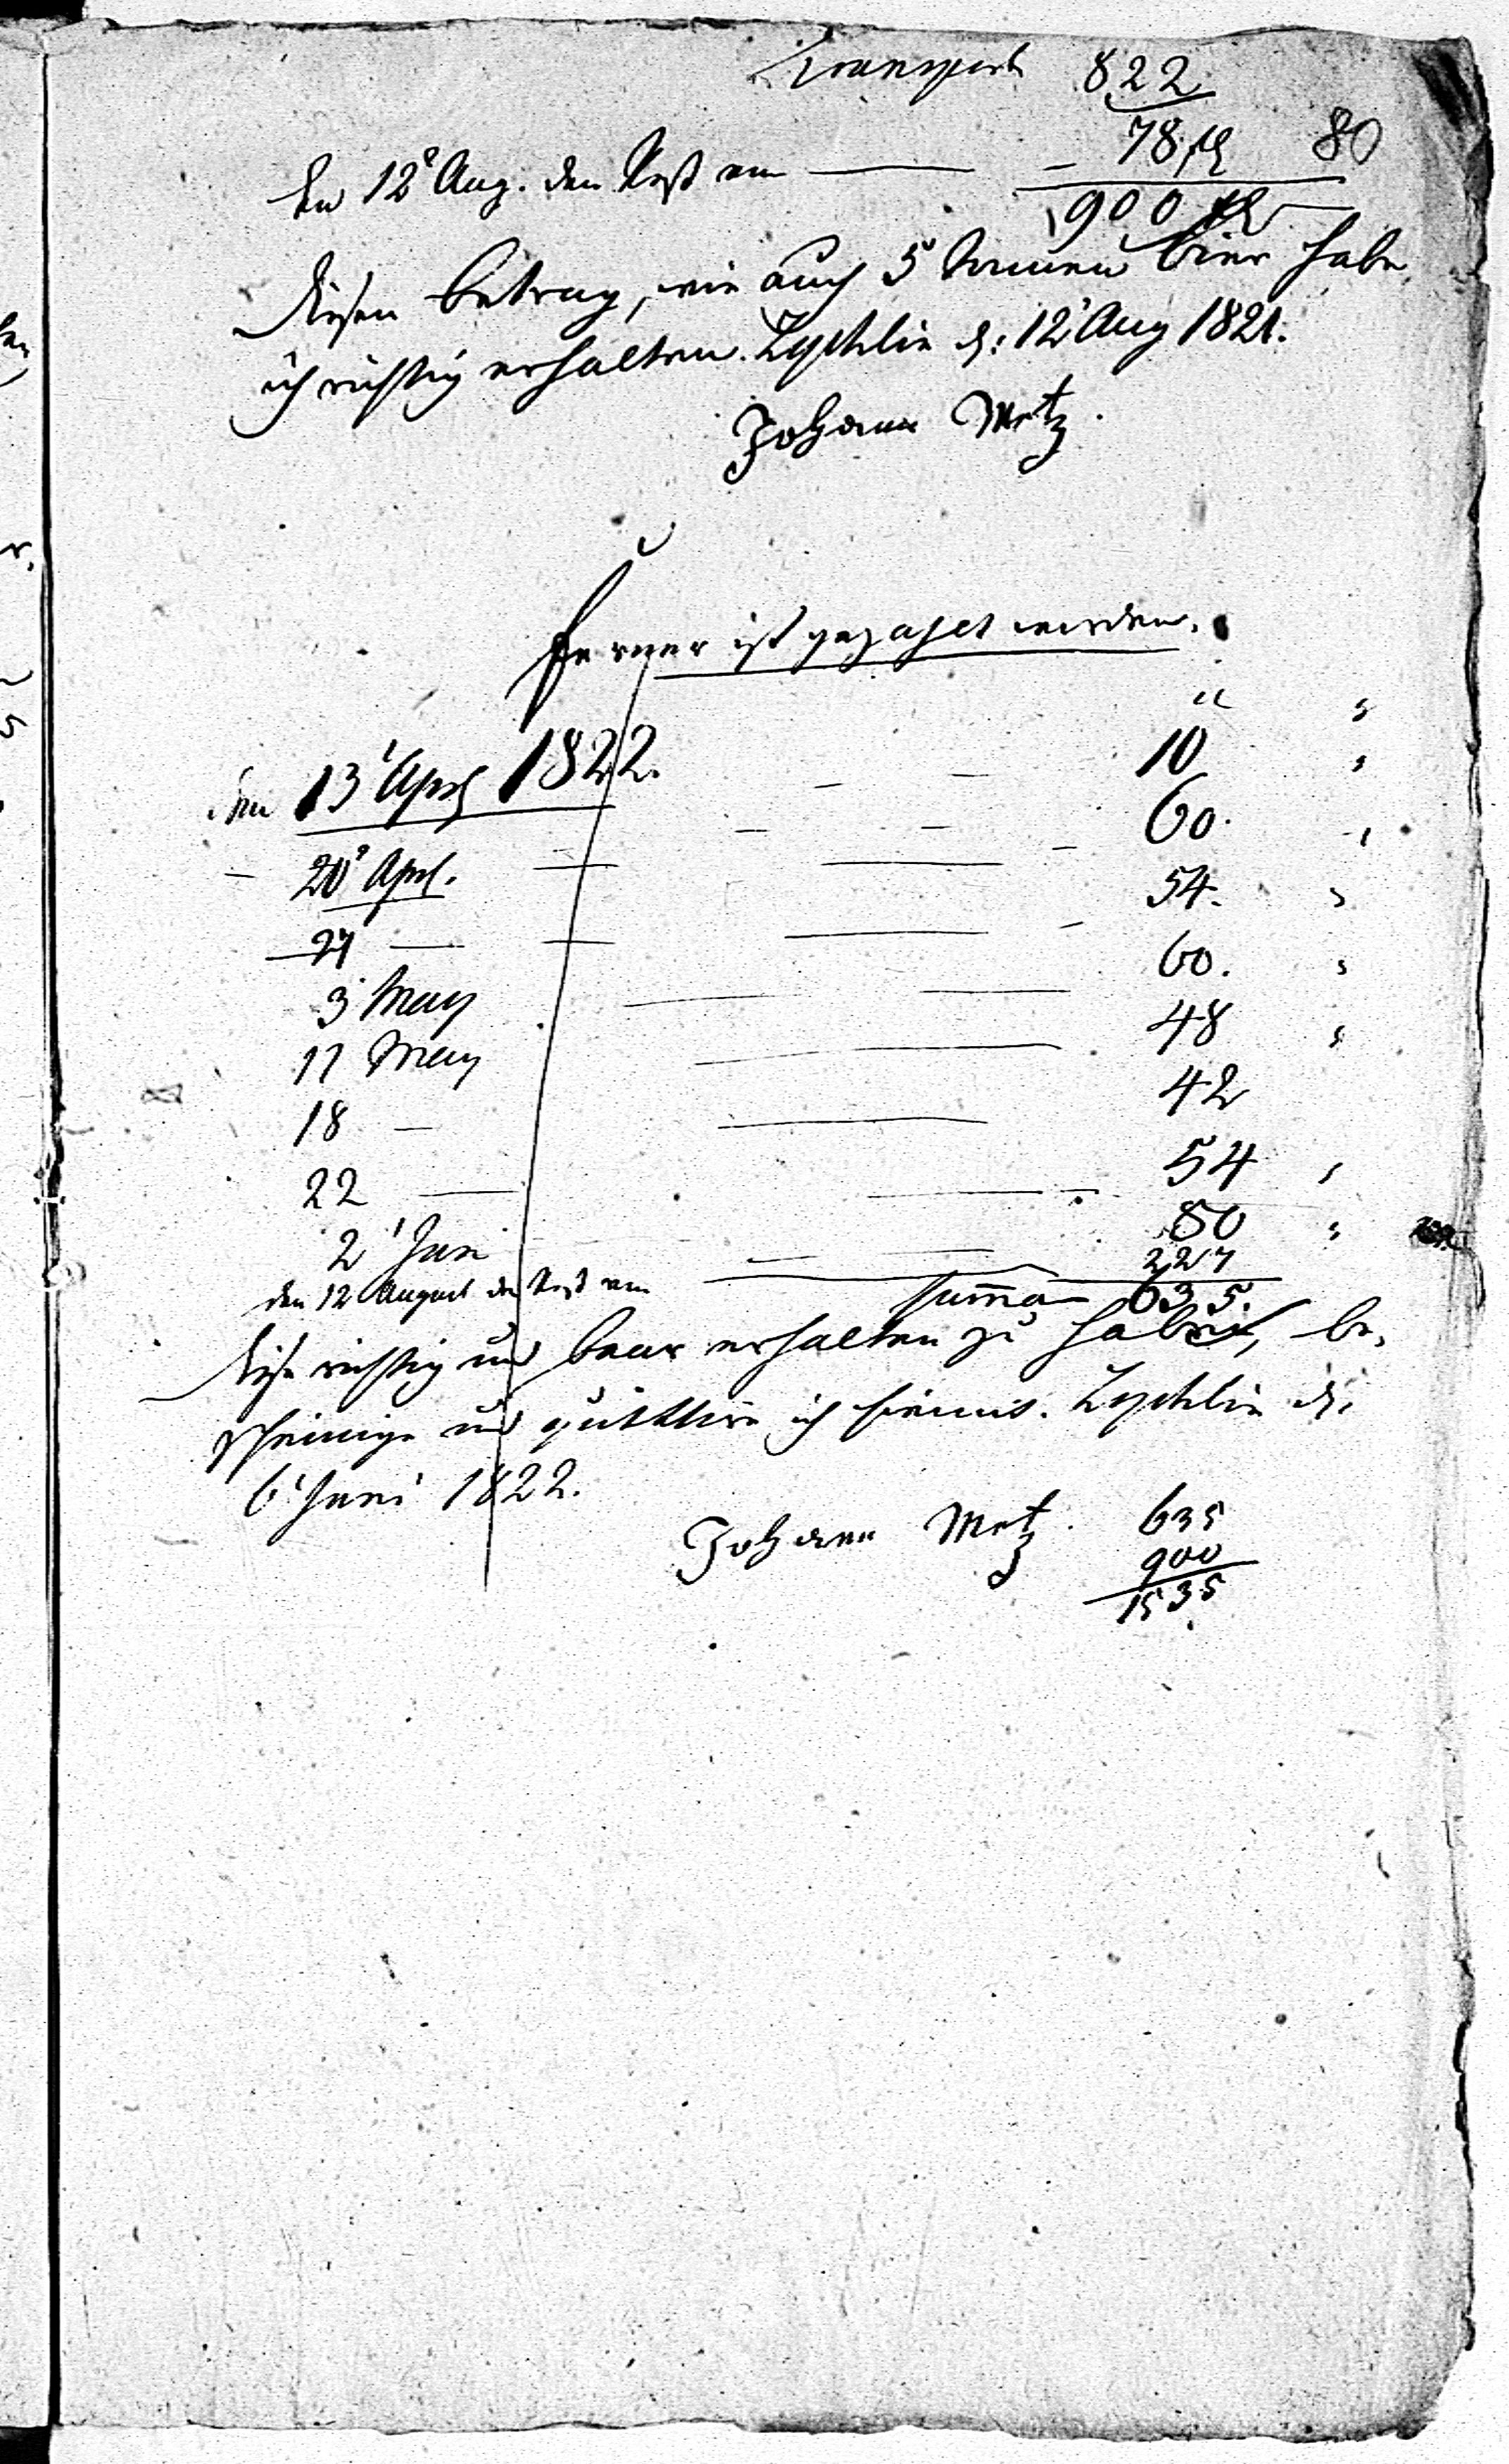 Transport 822
den 12t Aug. den Rest von — 78 fl 80
900 fl
Diesen Betrag, wie auch 5 Tonnen Bier habe
ich richtig erhalten. Zychlin d: 12t Aug 1821.
Johann Metz.
Ferner ist gezahlt worden.
den 13t Apl 1822. — — 10 "
- 20t Apl. — — 60. "
27 — — 54. "
3 May — — 60. "
11 May — 48 "
18 — — 42
22 — — 54 "
2t Juni — 80 "
den 12 August den Rest von — 227
Summa 635.
Diese richtig und baar erhalten zu haben, be-
scheinige und quittire ich hiermit. Zychlin d:
6t Juni 1822.
Johann Metz.
635
900
1535